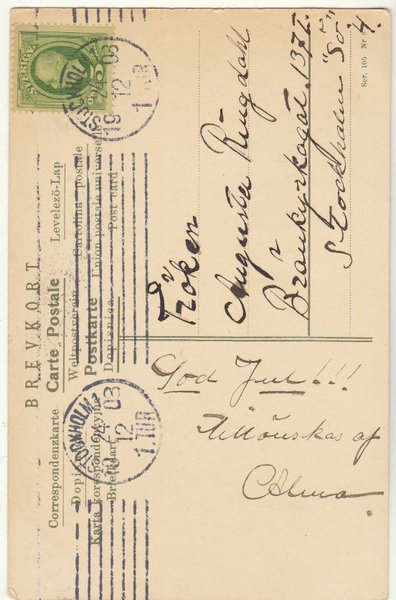 BREVKORT
Carte Postale
Weltpostverein Cartolina postale
Postkarte Union postale universelle
Dopisnica Post card
Levelező-Lap
Correspondenzkarte
Karta korespondencyjna
Briefkaart
SVERIGE
5
STOCKHOLM 1
24 03
19 12
1 TUR
STOCKHOLM 1
24 03
19 12
1 TUR
Ser. 165 Nr. 4.
Fröken
Augusta Ringdahl
Brånkyrkogat. 137 I.
Stockholm "Sö"
God Jul!!!
Tillönskas af
Alma